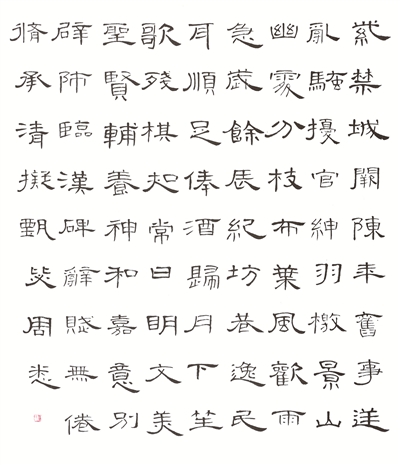 紫禁城闕陳年舊事送
亂騷擾官紳羽檄景山
幽處分枝布葉風歡雨
急歲餘辰紀坊巷逸民
耳順足俸酒歸月下笙
歌殘棋起常日明文美
聖賢輔養神和嘉意別
辟師臨漢碑辭賦無倦
脩承清擬甄毖周悉